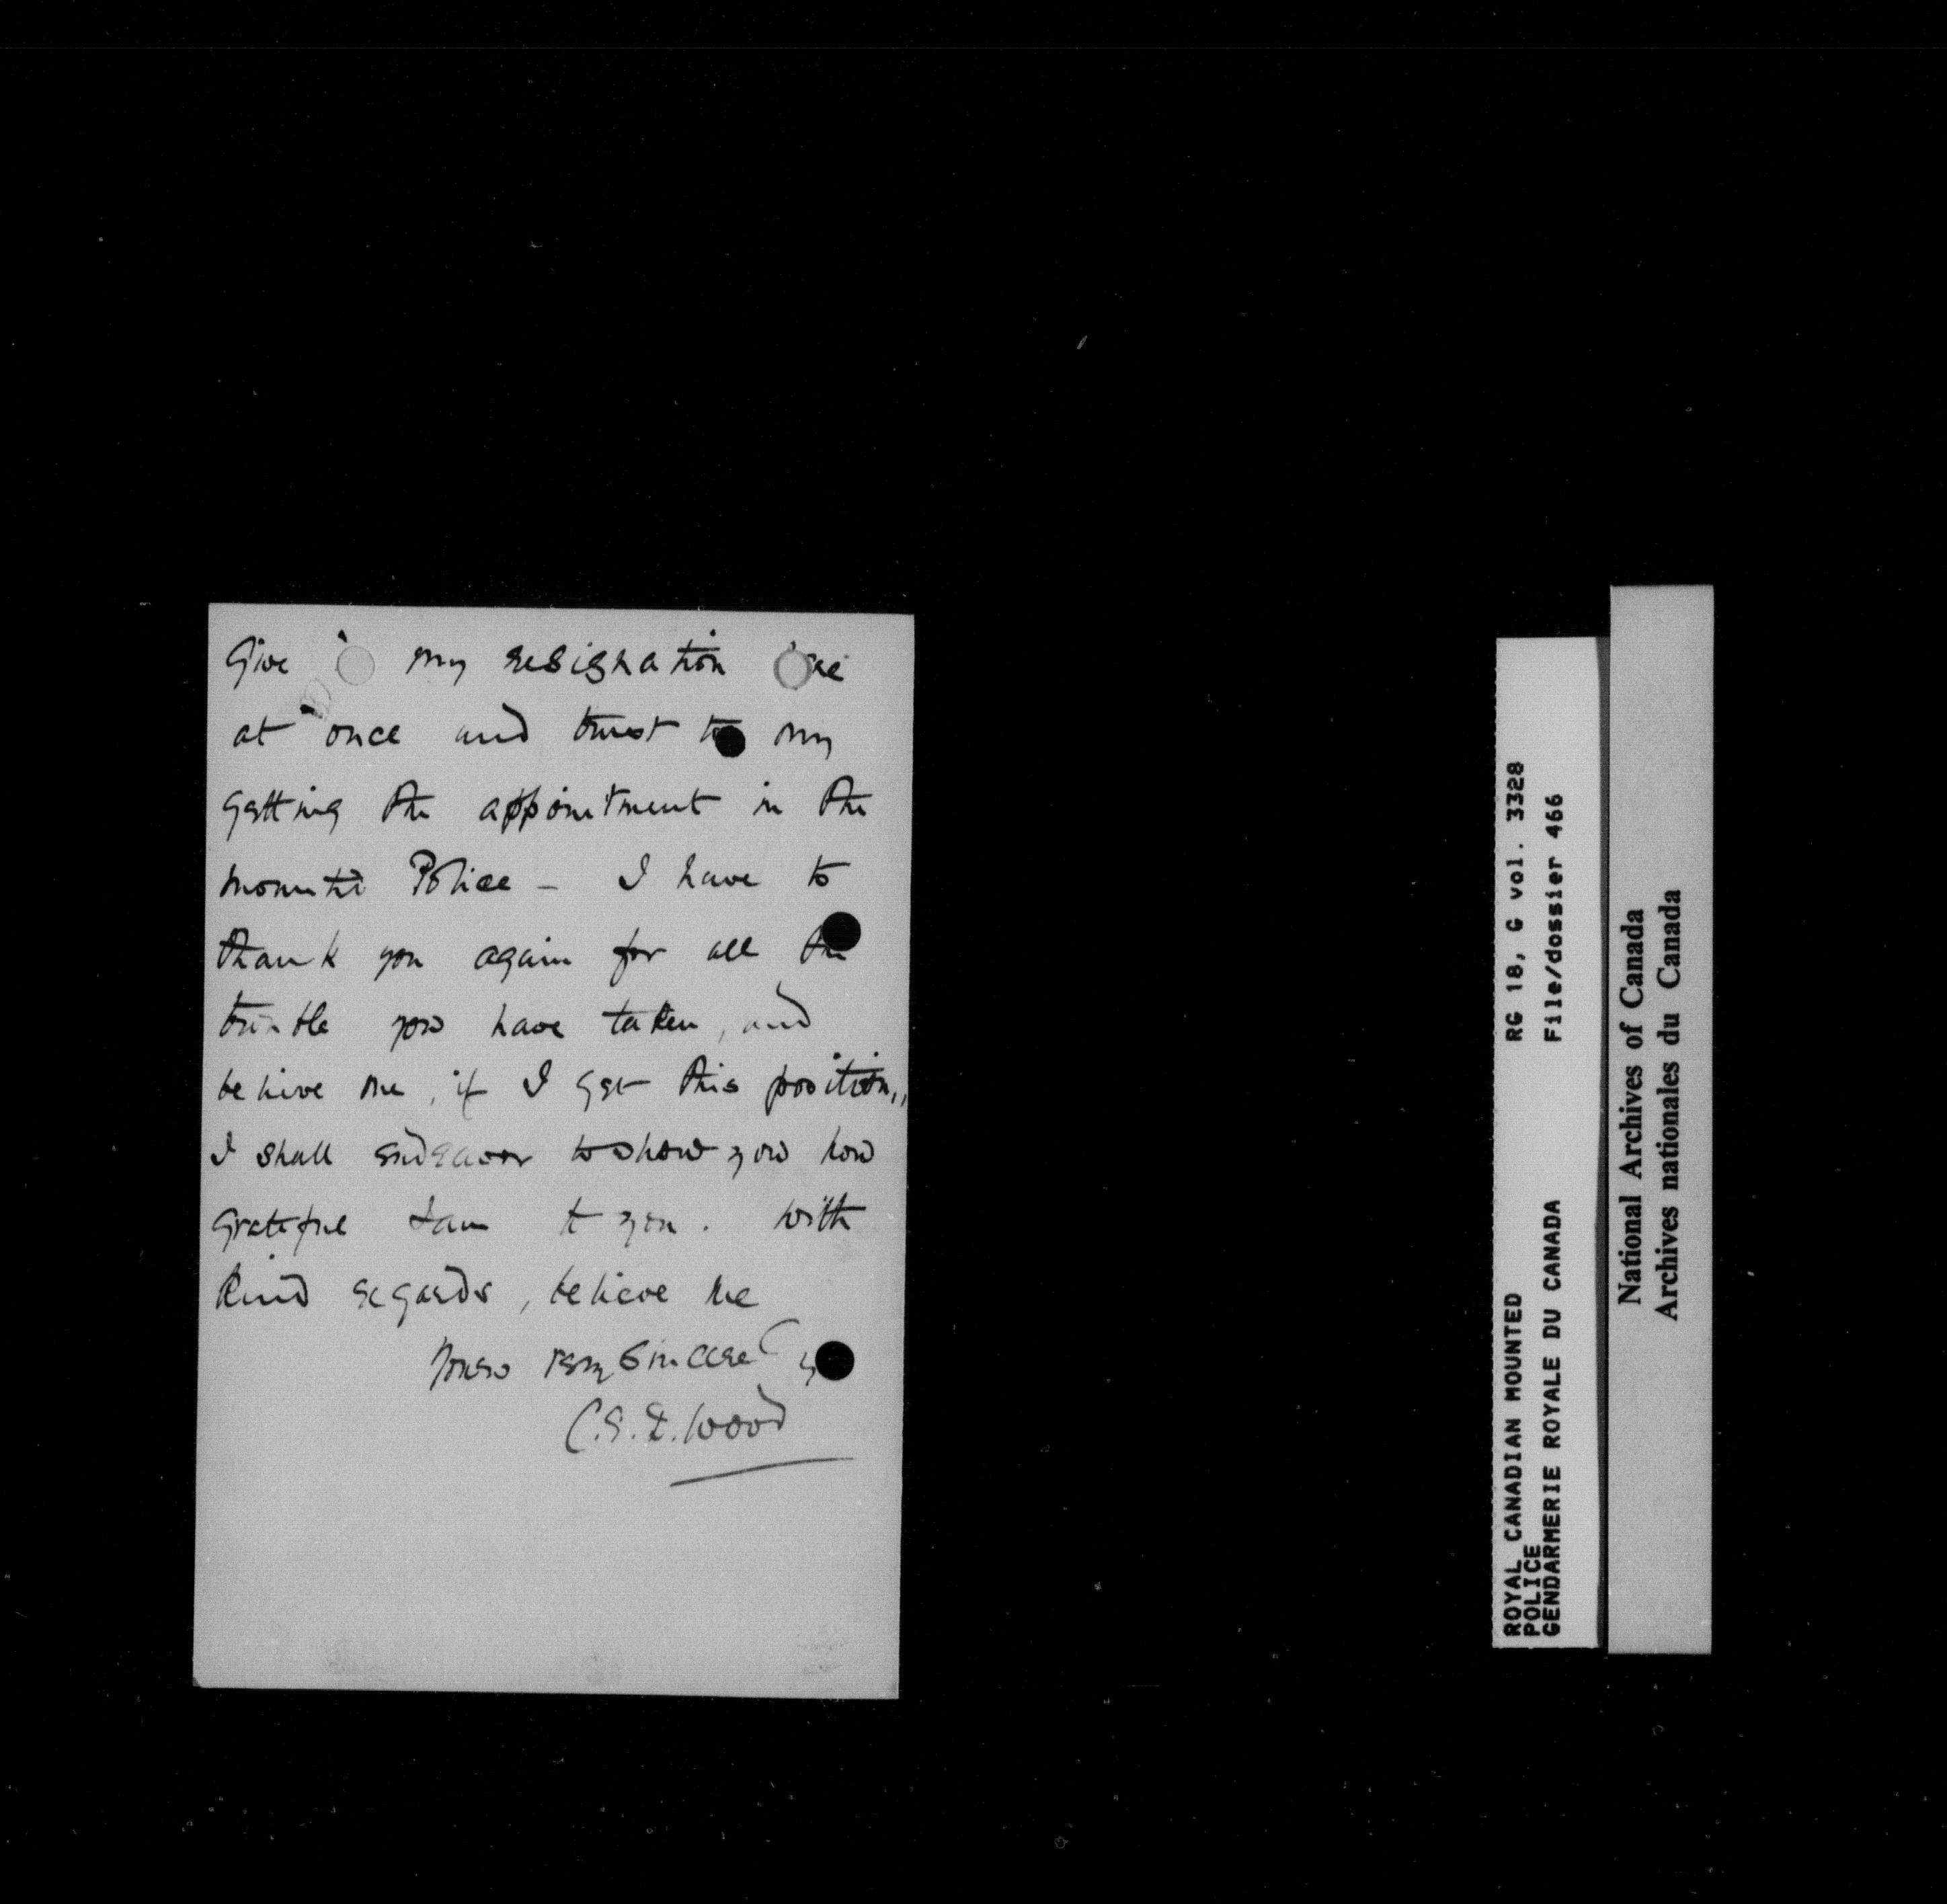 Give in my resignation here
at once and trust to my
getting the appointment in the
Mounted Police - I have to
thank you again for all the
trouble you have taken, and
believe me, if I get this position,
I shall endeavor to show you how
grateful I am to you. With
Kind regards, believe me
Yours very sincerely
C.E.D. Wood
ROYAL CANADIAN MOUNTED RG 18, G vol. 3328
POLICE
GENDARMERIE ROYALE DU CANADA File/dossier 466
National Archives of Canada
Archives nationales du Canada